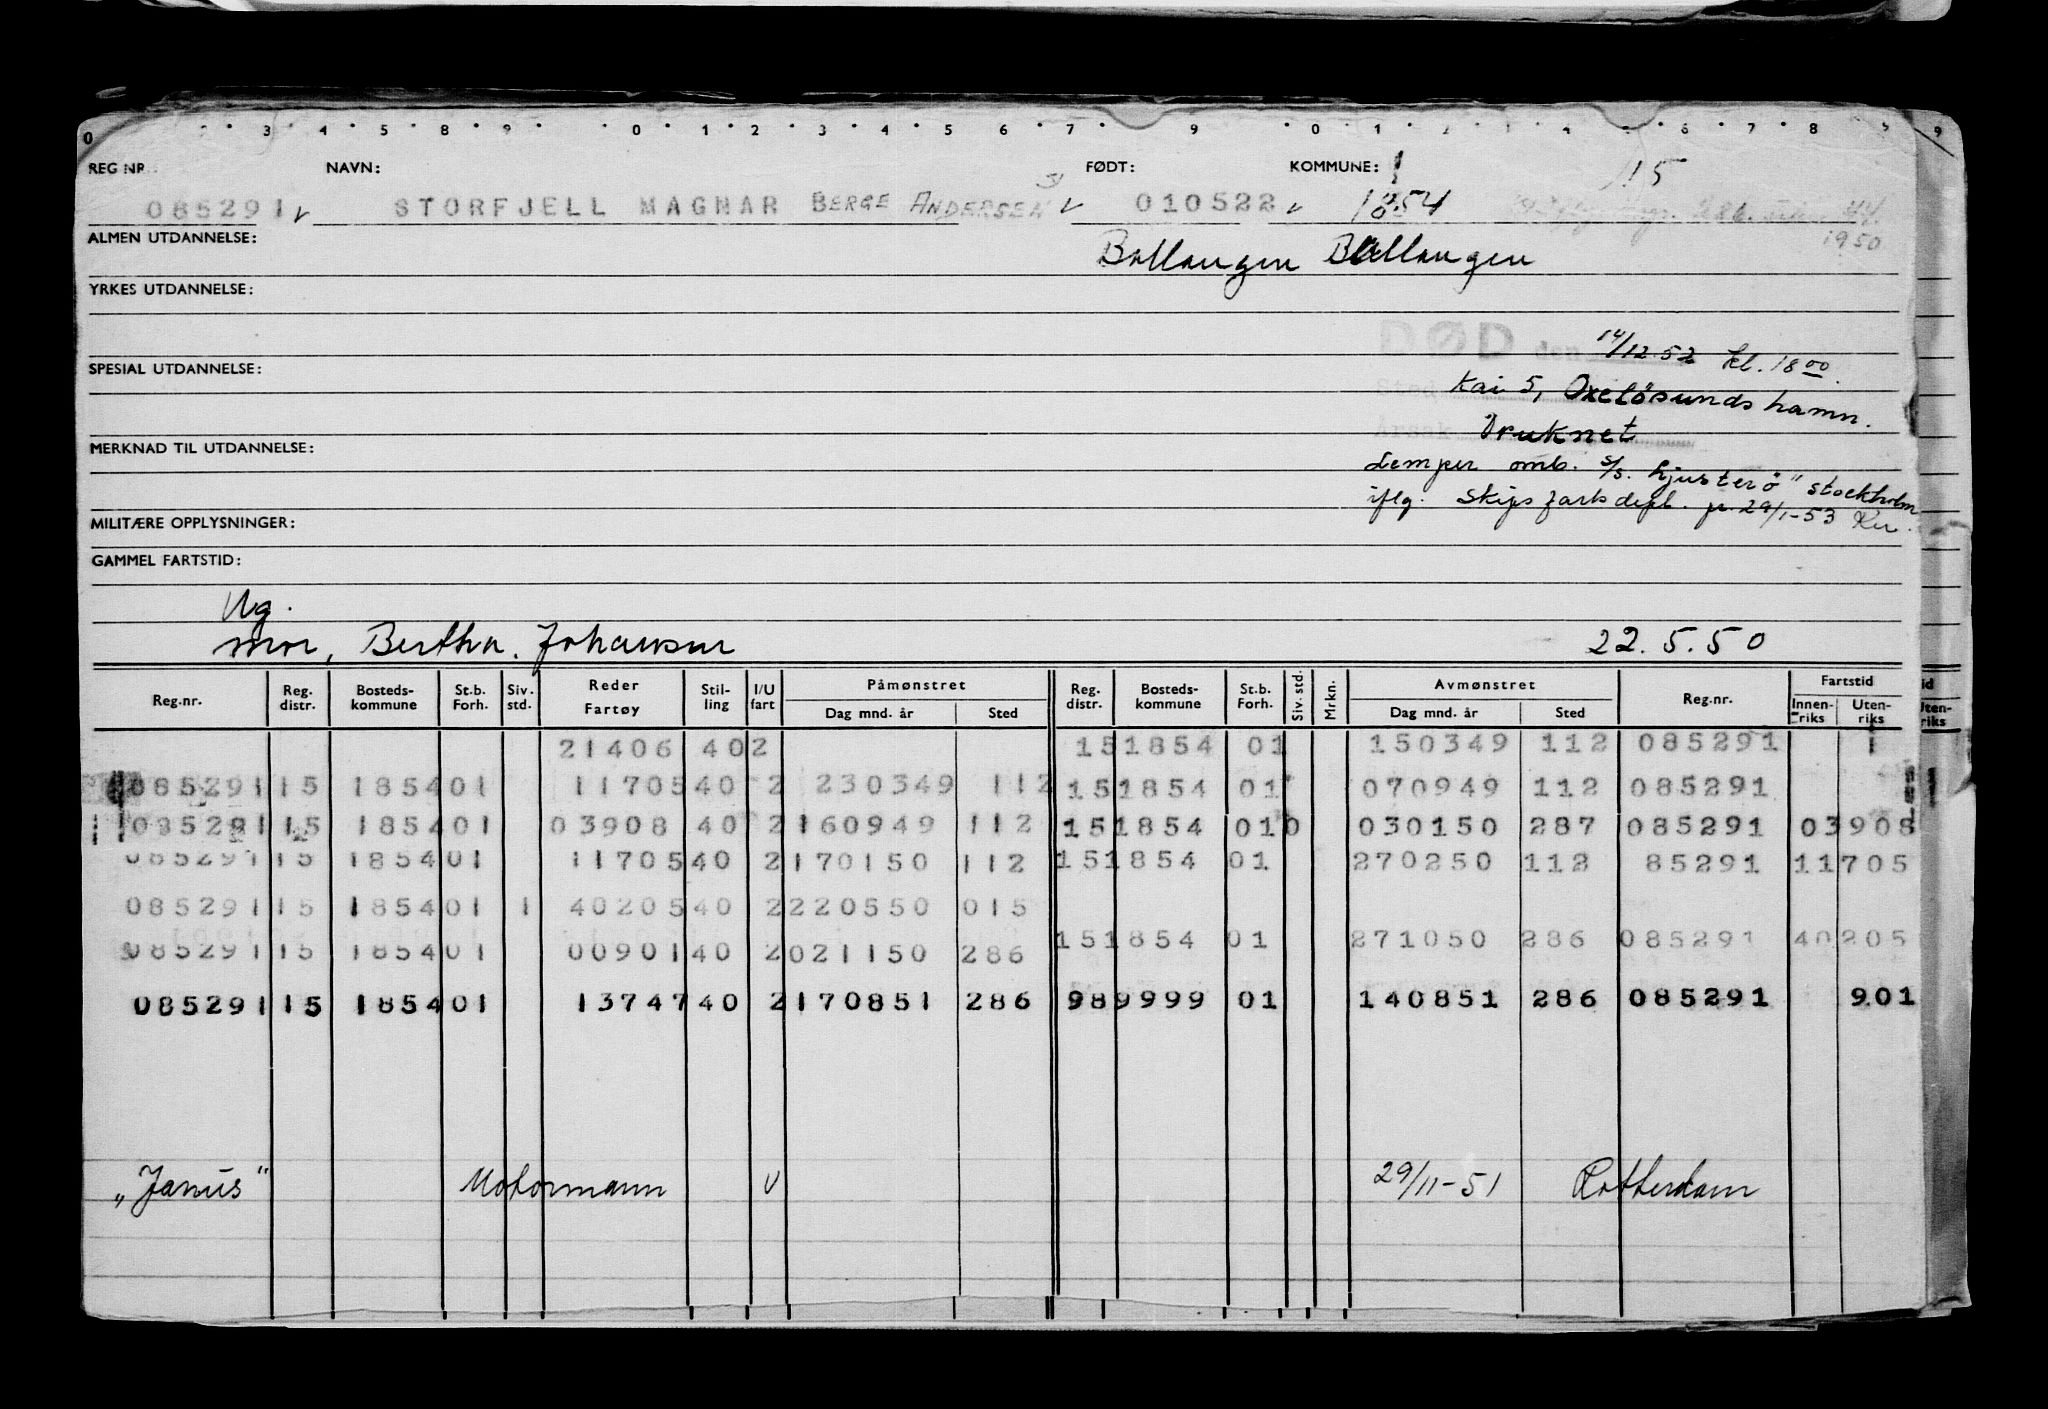 0 3 4 5 8 9 0 1 2 3 4 5 6 7 9 0 1 2 4 6 7 8 9
REG NR. NAVN: FØDT: KOMMUNE: 15
085291 v STORFJELL MAGNAR BERGE ANDERSEN v 010522 v 1854
1950
ALMEN UTDANNELSE: Ballangen Ballangen
YRKES UTDANNELSE:
DØD den 14/12.52 kl. 18 00.
SPESIAL UTDANNELSE: Sted Kai 5, Oxelösunds hamn.
Årsak Druknet
MERKNAD TIL UTDANNELSE:
Lemper omb. s/s. hjusterö" Stockholm
iflg. Skipsfartsdept. pr. 29/1-53
MILITÆRE OPPLYSNINGER:
GAMMEL FARTSTID:
Ug.
mor, Bertha Johansen 22.5.50
Reg.nr. Reg. distr. Bosteds-kommune St.b. Forh. Siv. std. Reder Fartøy Stil-ling I/U fart Påmønstret Dag mnd. år Sted Reg. distr. Bosteds-kommune St.b. Forh. Siv. std. Mrkn. Avmønstret Dag mnd. år Sted Reg.nr. Fartstid Innen-riks Uten-riks
21406 402 151854 01 150349 112 085291
085291 15 185401 11705 40 2 230349 112 151854 01 070949 112 085291
085291 15 185401 03908 40 2 160949 112 151854 010 030150 287 085291 03908
085291 15 185401 11705 40 2 170150 112 151854 01 270250 112 85291 11705
085291 15 185401 1 40205 40 2 220550 015
151854 01 271050 286 085291 40205
085291 15 185401 00901 40 2 021150 286
085291 15 185401 13747 40 2 170851 286 989999 01 140851 286 085291 901
„Janus" Motormann U 29/11-51 Rotterdam